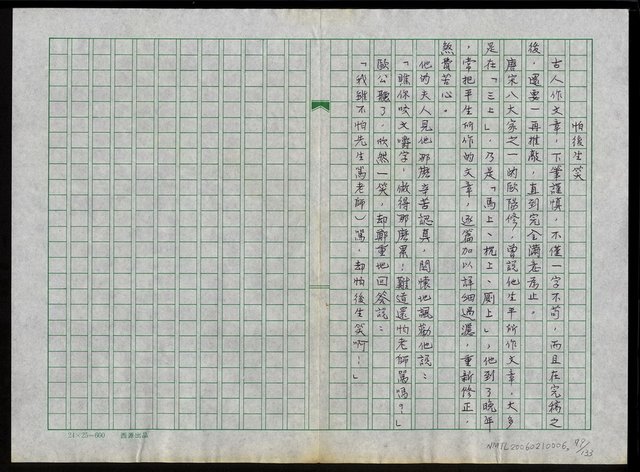 怕後生笑
古人作文章，下筆謹慎，不僅一字不苟，而且在完稿之
後，還要一再推敲，直到完全滿意為止。
唐宋八大家之一的歐陽修，曾說他生平所作文章，大多
是在「三上」，乃是「馬上、枕上、廁上」，他到了晚年
，常把平生所作的文章，逐篇加以詳細過濾，重新修正，
煞費苦心。
他的夫人見他那麼辛苦認真，關懷地諷勸他說：
「瞧你咬文嚼字，做得那麼累！難道還怕老師罵嗎？」
歐公聽了，欣然一笑，却鄭重地回答說：
「我雖不怕先生（老師）罵，却怕後生笑啊！」
24×25=600 西源出品
NMTL20060210006.
99/133